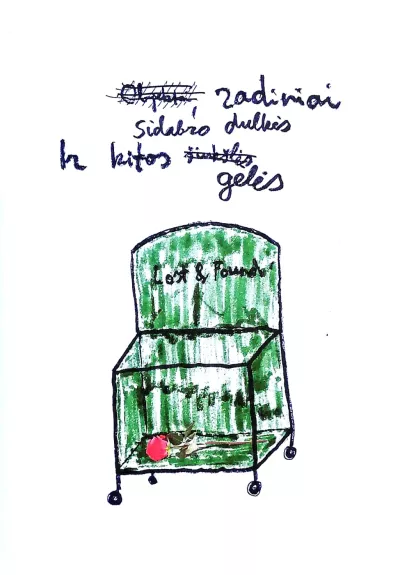 radiniai
sidabro dulkės
Ir kitos
gelės
Lost & Found